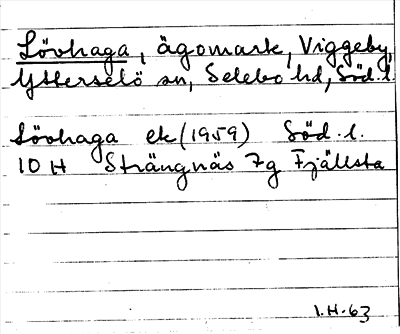 Lövhaga, ägomark, Viggeby,
Ytterselö sn, Selebo hd, Söd. l.
Lövhaga ek (1959) Söd. l.
10 H Strängnäs 7g Fjällsta
I.H.-63